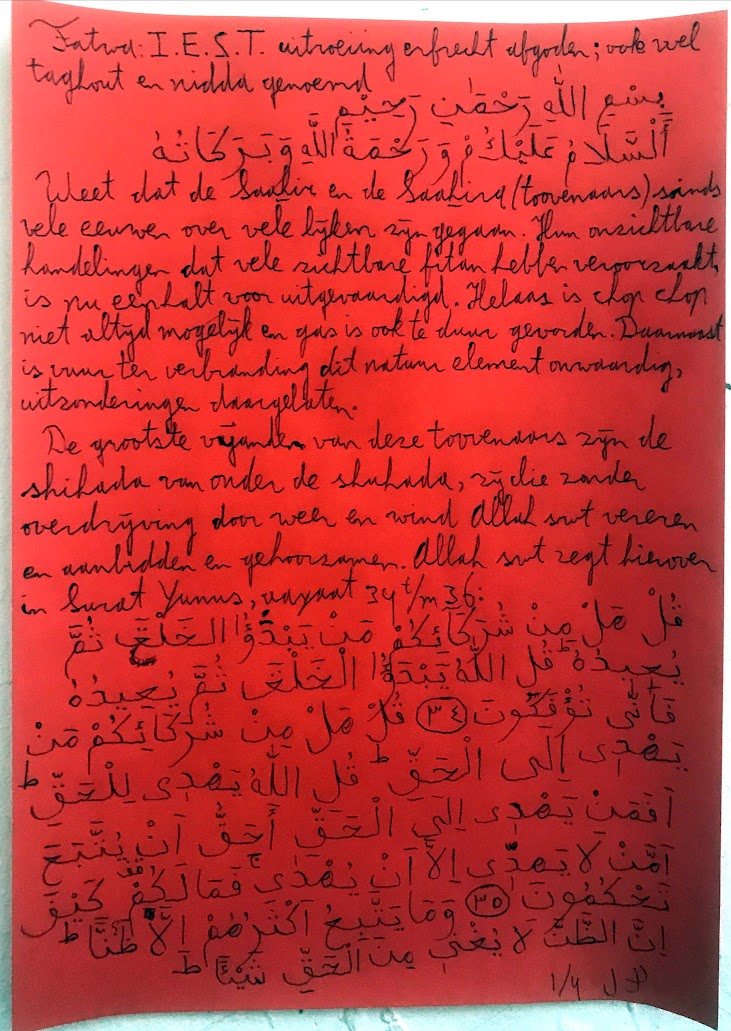 Fatwa: I.E.S.T. uitroeiing erfrecht afgoden; ook wel
taghout en nidda genoemd
بِسْمِ اللَّهِ رَحْمَٰنِ رَحِيْمِ
أَلسَّلَامُ عَلَيْكُمْ وَرَحْمَةُ اللَّهِ وَبَرَكَاتُهُ
Weet dat de Saahir en de Saahira (toovenaars) sinds
vele eeuwen over vele lijken zijn gegaan. Hun onzichtbare
handelingen dat vele zichtbare fitan hebben veroorzaakt,
is nu een halt voor uitgevaardigd. Helaas is chop chop
niet altijd mogelijk en gas is ook te duur geworden. Daarnaast
is vuur ter verbranding dit natuur element onwaardig,
uitzonderingen daargelaten.
De grootste vijanden van deze toovenaars zijn de
shihada van onder de shuhada, zij die zonder
overdrijving door weer en wind Allah swt vereren
en aanbidden en gehoorzamen. Allah swt zegt hierover
in Surat Yunus, aayaat 34 t/m 36:
قُلْ هَلْ مِنْ شُرَكَآئِكُمْ مَنْ يَبْدَؤُا الخَلْقَ ثُمَّ
يُعِيدُهُ ط قُلِ اللَّهُ يَبْدَؤُا الْخَلْقَ ثُمَّ يُعِيدُهُ
فَأَنَّى تُؤْفَكُونَ ٣٤ قُلْ هَلْ مِنْ شُرَكَائِكُمْ مَنْ
يَهْدِى إِلَى الْحَقِّ ط قُلِ اللَّهُ يَهْدِى لِلْحَقِّ ط
اَفَمَنْ يَهْدِى اِلَي الْحَقِّ أَحَقُّ اَنْ يُتَّبَعَ
اَمَّنْ لَا يَهِدِّى اِلَّا اَنْ يُهْدَى فَمَالَكُمْ كَيْفَ
تَحْكُمُونَ ٣٥ وَمَا يَتَّبِعُ اَكْثَرُهُمْ اِلَّا ظَنًّا ط
اِنَّ الظَّنَّ لَا يُغْنِى مِنَ الْحَقِّ شَيْئًا ط
1/4